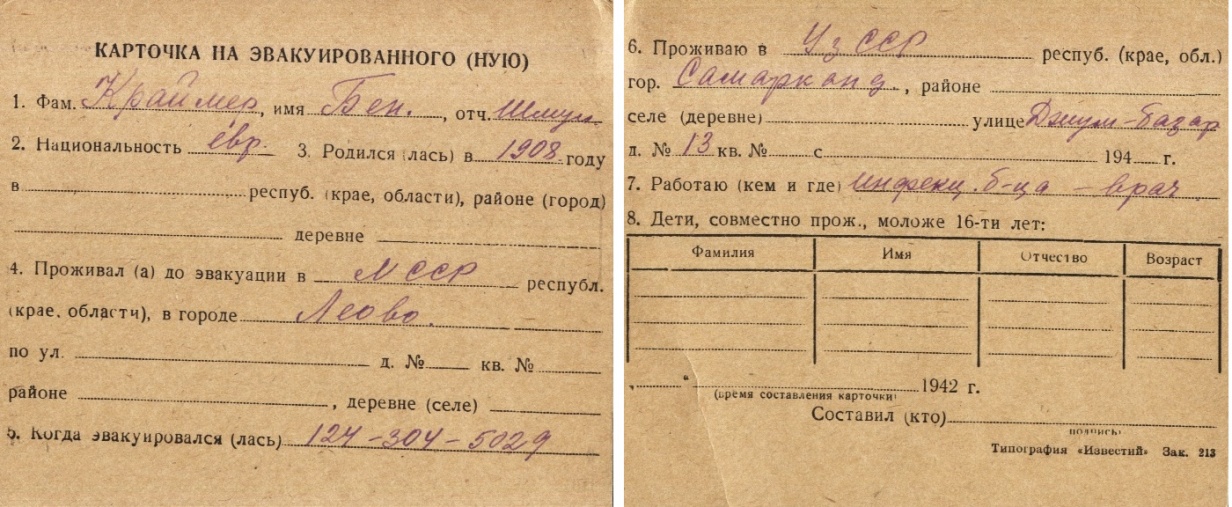 КАРТОЧКА НА ЭВАКУИРОВАННОГО (НУЮ)
1. Фам. Краймер, имя Бен., отч. Шмул
2. Национальность евр. 3. Родился (лась) в 1908 году
в респуб. (крае, области), районе (город)
деревне
4. Проживал (а) до эвакуации в МССР республ.
(крае, области), в городе Леово.
по ул. д. № кв. №
районе , деревне (селе)
5. Когда эвакуировался (лась) 124-304-5029
6. Проживаю в УзССР респуб. (крае, обл.)
гор. Самарканд., районе
селе (деревне) улице Джум-базар
д. № 13 кв. № с 194 г.
7. Работаю (кем и где) инфекц. б-ца – врач
8. Дети, совместно прож., моложе 16-ти лет:
Фамилия Имя Отчество Возраст
„ “ 1942 г.
(время составления карточки)
Составил (кто)
подпись
Типография «Известий» Зак. 213